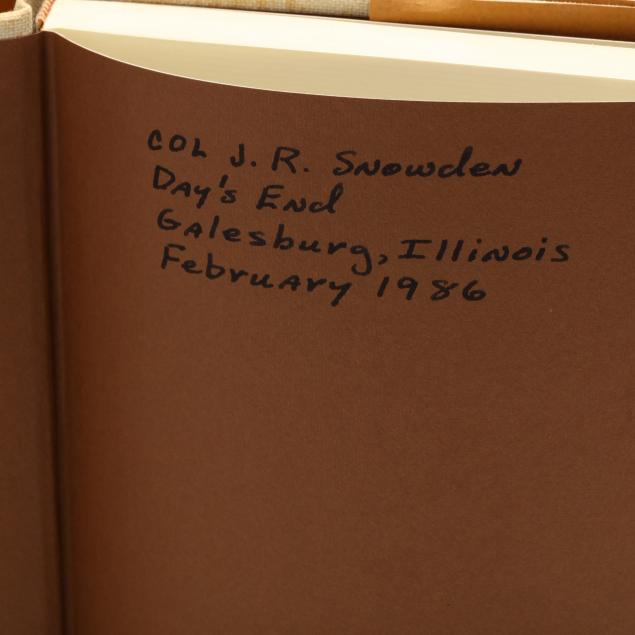 COL J. R. Snowden
Day's End
Galesburg, Illinois
February 1986